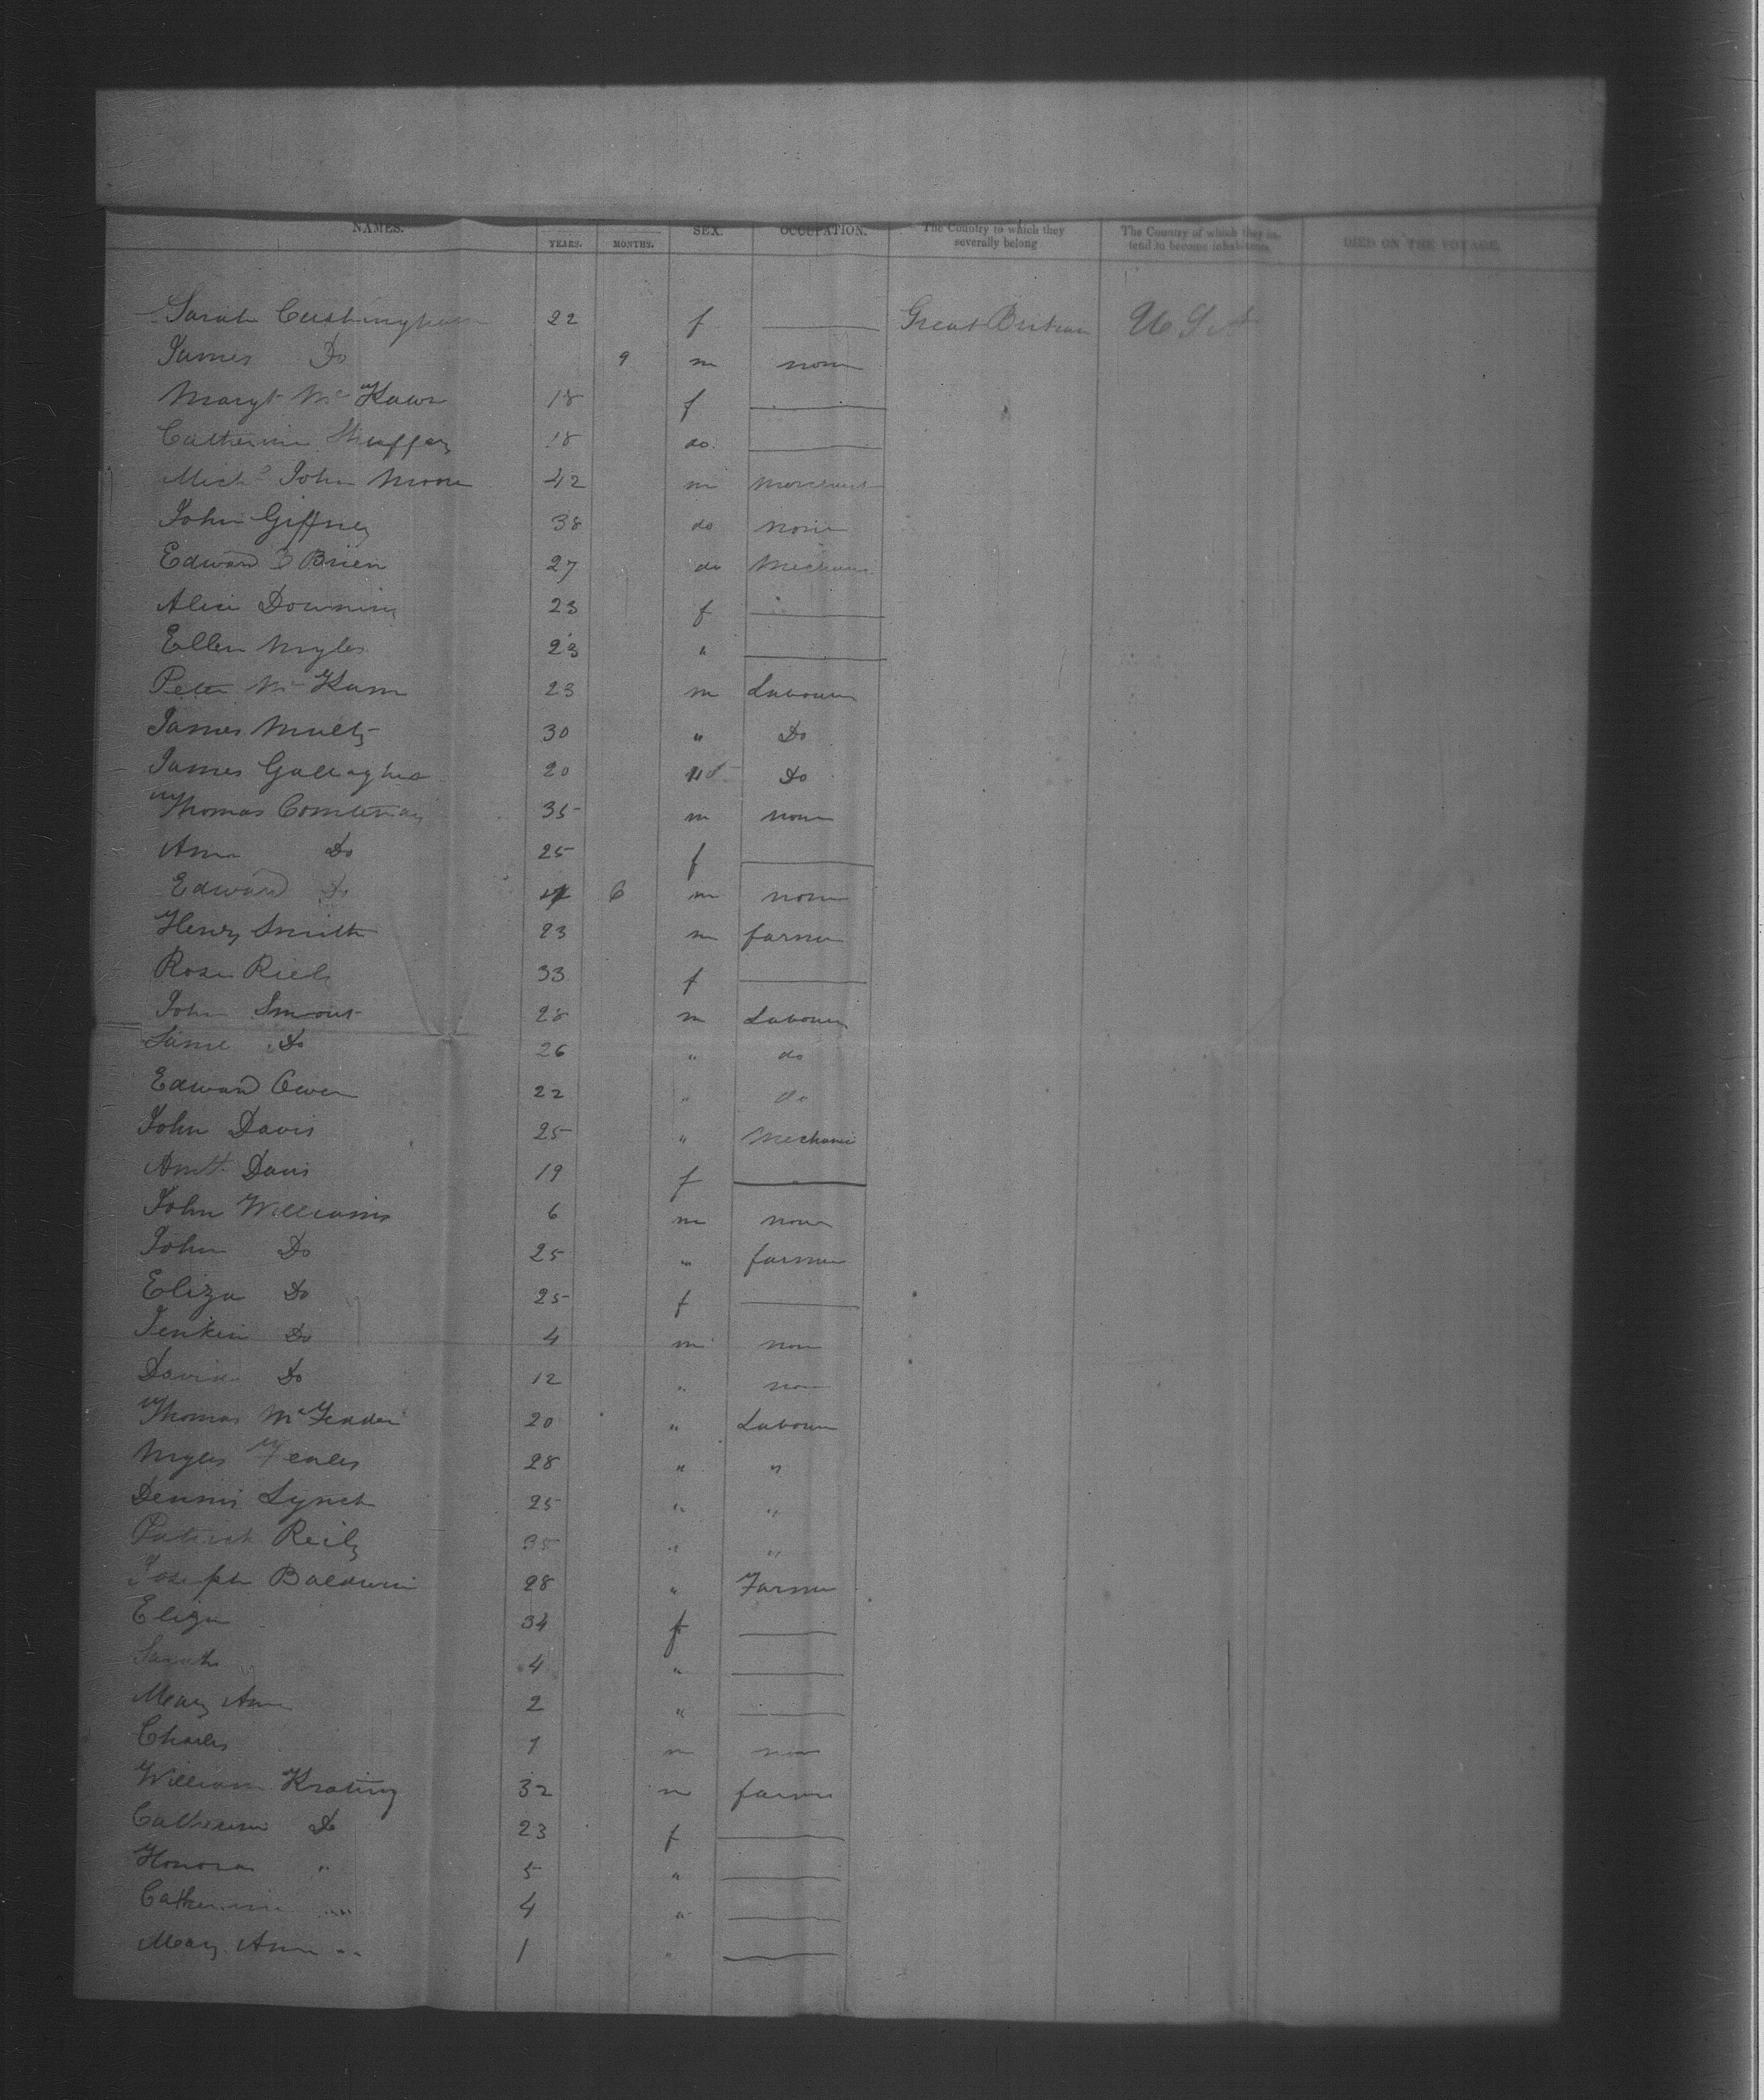 NAMES. YEARS. MONTHS. SEX. OCCUPATION. The Country to which they severally belong The Country of which they intend to become inhabitants. DIED ON THE VOYAGE.
Sarah Cushingham 22 f Great Britain U S A
James Do 9 m none
Margt Mc 18 f
Catherine 18 do
Michl John Moore 42 m Merchant
John Giffney 38 do none
Edward O Brien 27 do Mechanic
Alice Downing 23 f
Ellen Myles 23 "
Peter Mc Kann 23 m Labourer
James 30 " Do
James Gallagher 20 Do
Thomas 35 m none
Ann Do 25 f
Edward Do 6 m none
Henry Smith 23 m farmer
Rose Riely 33 f
John 28 m Labourer
Do 26 " do
Edward Owen 22 " do
John Davis 25 " Mechanic
Davis 19 f
John Williams 6 m none
John Do 25 " farmer
Eliza Do 25 f
Jenkin Do 4 m none
David Do 12 " none
Thomas Mc 20 " Labourer
Myles 28 " "
Dennis Lynch 25 " "
Patrick Reily 35 " "
Joseph Baldwin 28 " Farmer
Eliza 34 f
Sarah 4 "
Mary Ann 2 "
Charles 1 m none
William Krating 32 m farmer
Catherine Do 23 f
Honora " 5 "
Catherine " 4 "
Mary Ann " 1 "